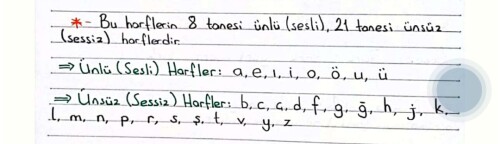 *- Bu harflerin 8 tanesi ünlü (sesli), 21 tanesi ünsüz
(sessiz) harflerdir.
⇒ Ünlü (Sesli) Harfler: a, e, ı, i, o, ö, u, ü
⇒ Ünsüz (Sessiz) Harfler: b, c, ç, d, f, g, ğ, h, j, k,
l, m, n, p, r, s, ş, t, v, y, z